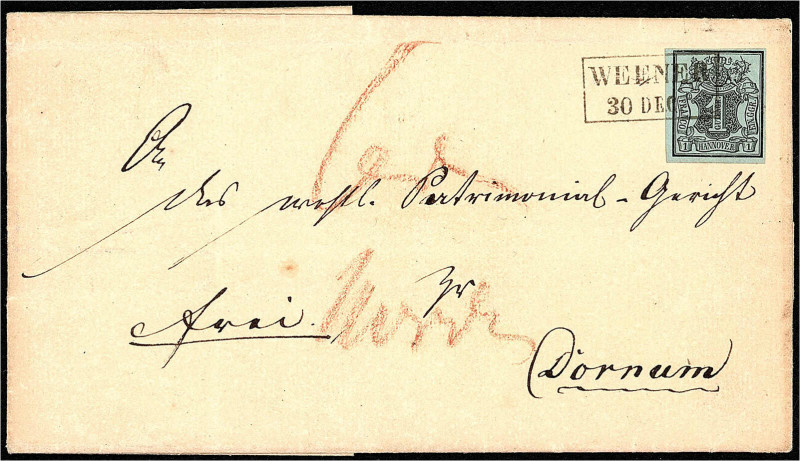 WEENER
30 DEC
1
HANNOVER
1 1
An
das wohll. Patrimonial-Gericht
zu
frei.
Dornum